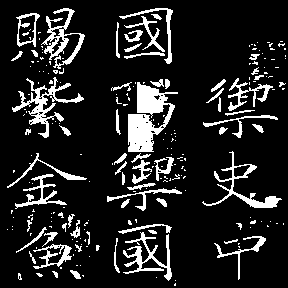 禦史中
國防禦國
賜紫金魚